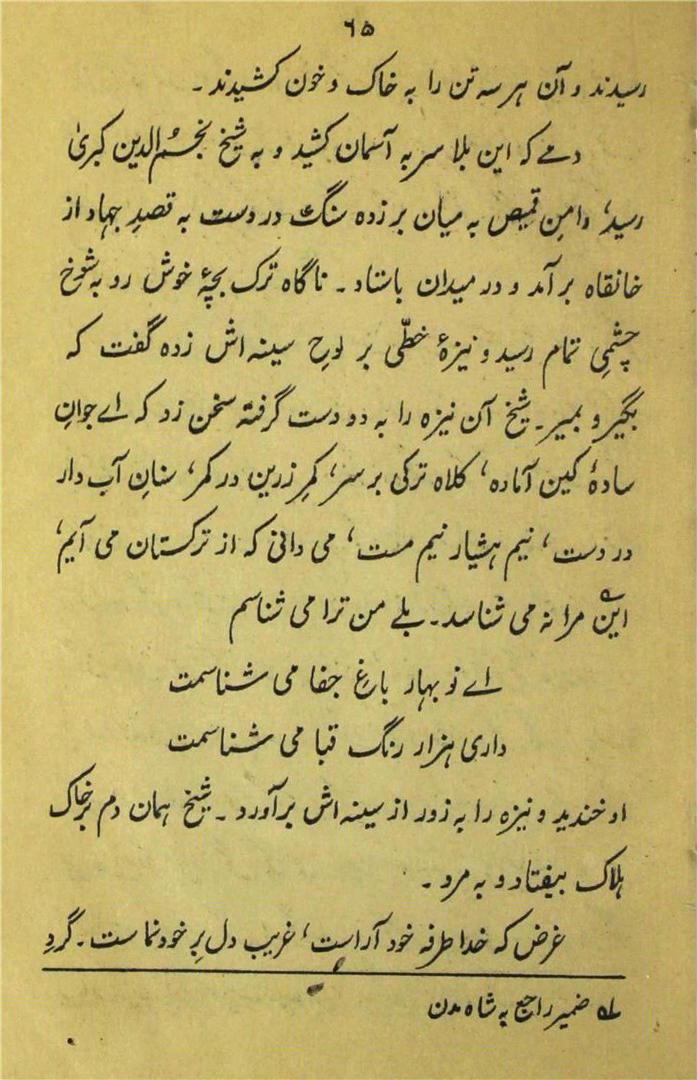 ۶۵
رسیدند و آن هر سه تن را به خاک و خون کشیدند ۔
دمے که این بلا سر به آسمان کشید و به شیخ نجم الدین کبریٰ
رسید، دامن قمیص به میان بر زده سنگ در دست به قصدِ جهاد از
خانقاه بر آمد و در میدان باستاد ۔ ناگاه ترک بچۂ خوش رو به شوخ
چشمیِ تمام رسید و نیزۂ خطّی بر لوحِ سینه اش زده گفت که
بگیر و بمیر۔ شیخ آن نیزه را به دو دست گرفته سخن زد که اے جوانِ
سادۂ کین آماده، کلاه ترکی بر سر، کمرِ زرین در کمر، سنانِ آب دار
در دست، نیم هشیار نیم مست، می دانی که از ترکستان می آیم،
این مرا نه می شناسد۔ بلے من ترا می شناسم
اے نو بهار باغِ جفا می شناسمت
داری هزار رنگ قبا می شناسمت
او خندید و نیزه را به زور از سینه اش برآورد ۔ شیخ همان دم بر خاک
هلاک بیفتاد و به مرد ۔
غرض که خدا طرفه خود آراست، غریب دل بر خود نماست ۔ گردِ
ضمیر راجع به شاه مدن